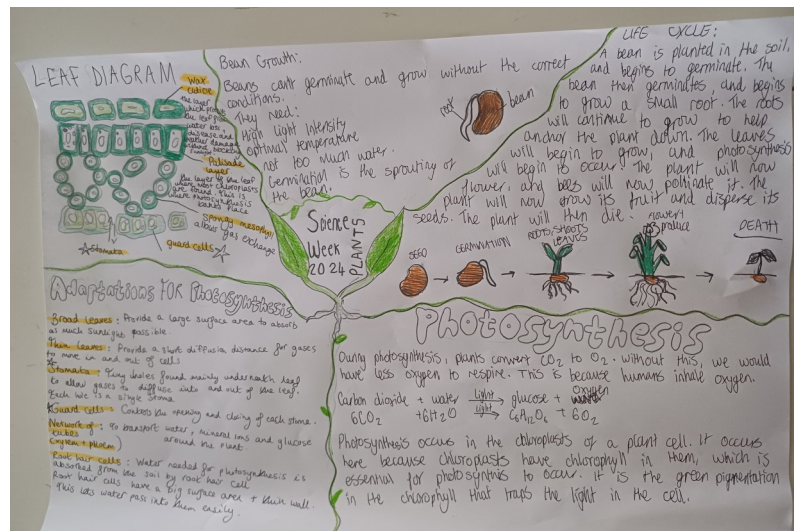 LEAF DIAGRAM
Wax
cuticle
the layer
which protects
the leaf from
water loss,
disease and
other damage
Palisade
layer
the layer of the leaf
where most chloroplasts
are found, this is
where photosynthesis
takes place
Spongy mesophyll
allows gas exchange
Stomata
guard cells
Bean Growth:
Beans cant germinate and grow without the correct
conditions.
They need:
High light intensity
Optimal temperature
not too much water.
Germination is the sprouting of
the bean.
root
bean
LIFE CYCLE:
A bean is planted in the soil.
and begins to germinate. The
bean then germinates, and begins
to grow a small root. The roots
will continue to grow to help
anchor the plant down. The leaves
will begin to grow, and photosynthesis
will begin to occur. The plant will now
flower, and bees will now pollinate it. The
plant will now grow its fruit and disperse its
seeds. The plant will then die.
SEED
GERMINATION
ROOTS, SHOOTS
LEAVES
flower+
produce
DEATH
Science
Week
2024
PLANTS
Adaptations FOR Photosynthesis
Broad leaves: Provide a large surface area to absorb
as much sunlight possible.
Thin leaves: Provide a short diffusion distance for gases
to move in and out of cells
Stomata: Tiny holes found mainly underneath leaf
to allow gases to diffuse into and out of the leaf.
Each hole is a single stoma
Guard cells: Controls the opening and closing of each stoma.
Network of: To transport water, mineral ions and glucose
tubes around the plant.
(xylem + phloem)
Root hair cells: Water needed for photosynthesis is
absorbed from the soil by root hair cell
Root hair cells have a big surface area + thin wall.
This lets water pass into them easily.
Photosynthesis
During photosynthesis, plants convert CO2 to O2. Without this, we would
have less oxygen to respire. This is because humans inhale oxygen.
Carbon dioxide + water Light glucose + oxygen
6CO2 +6H2O Light C6H12O6 + 6O2
Photosynthesis occurs in the chloroplasts of a plant cell. It occurs
here because chloroplasts have chlorophyll in them, which is
essential for photosynthis to occur. It is the green pigmentation
in the chlorophyll that traps the light in the cell.